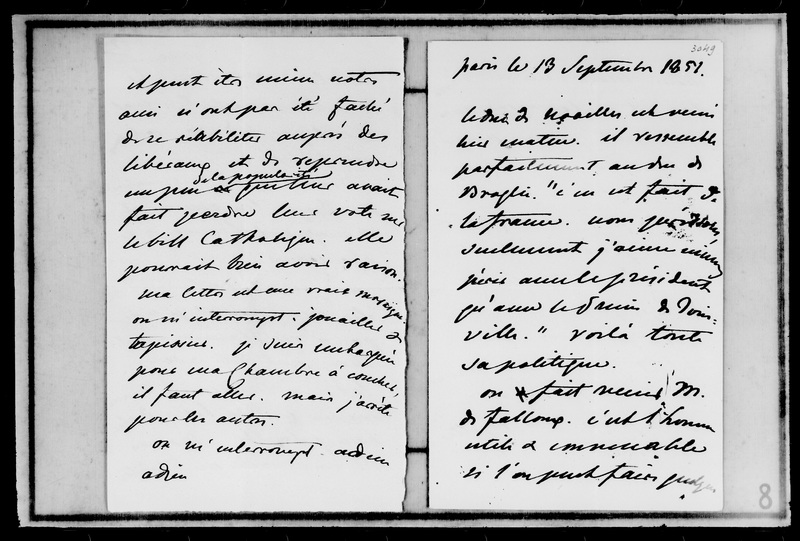 et peut être même notre
ami n'ont pas été faché
de se réhabiliter auprès des
liberaux et de reprendre
de la popularité
un peu que leur avait
fait perdre leur vote sur
le bill Catholique. elle
pourrait bien avoir raison.
ma lettre est une vraie mosaique
on m'interrompt.
tapissier. je suis
pour ma Chambre à coucher,
il faut aller. mais j'arrête
pour les autres.
on m'interrompt. adieu
adieu
3049
paris le 13 Septembre 1851.
le duc de Noailles est venu
hier matin. il ressemble
parfaitement au duc de
Broglie. "c'en est fait de
la france. nous périrons,
seulement j'aime mieux
périr avec le président
qu'avec le Prince de Join=
ville." voilà toute
sa politique.
on fait venir M.
de falloux. c'est l'homme
utile & convenable
si l'on peut faire quelque
8